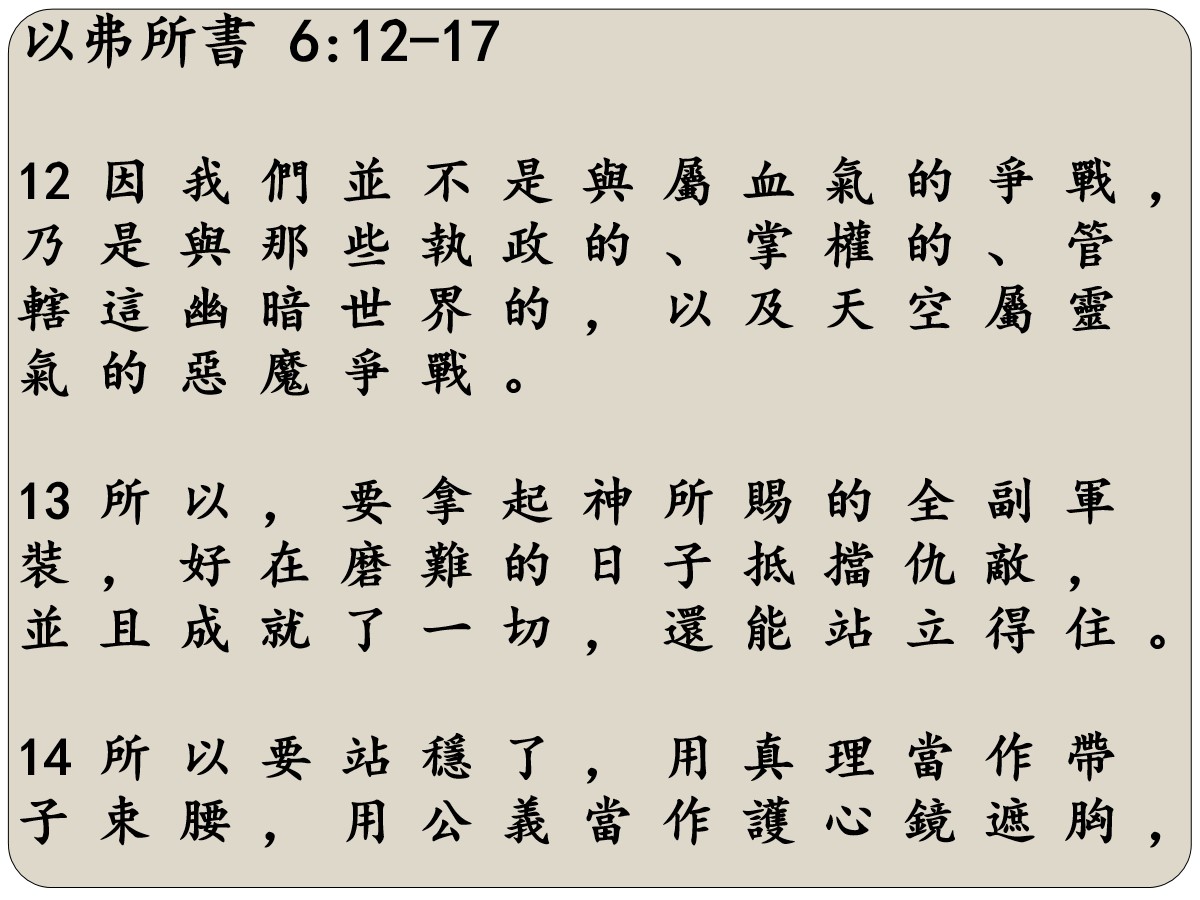 以弗所書 6:12-17
12 因我們並不是與屬血氣的爭戰，
乃是與那些執政的、掌權的、管
轄這幽暗世界的，以及天空屬靈
氣的惡魔爭戰。
13 所以，要拿起神所賜的全副軍
裝，好在磨難的日子抵擋仇敵，
並且成就了一切，還能站立得住。
14 所以要站穩了，用真理當作帶
子束腰，用公義當作護心鏡遮胸，